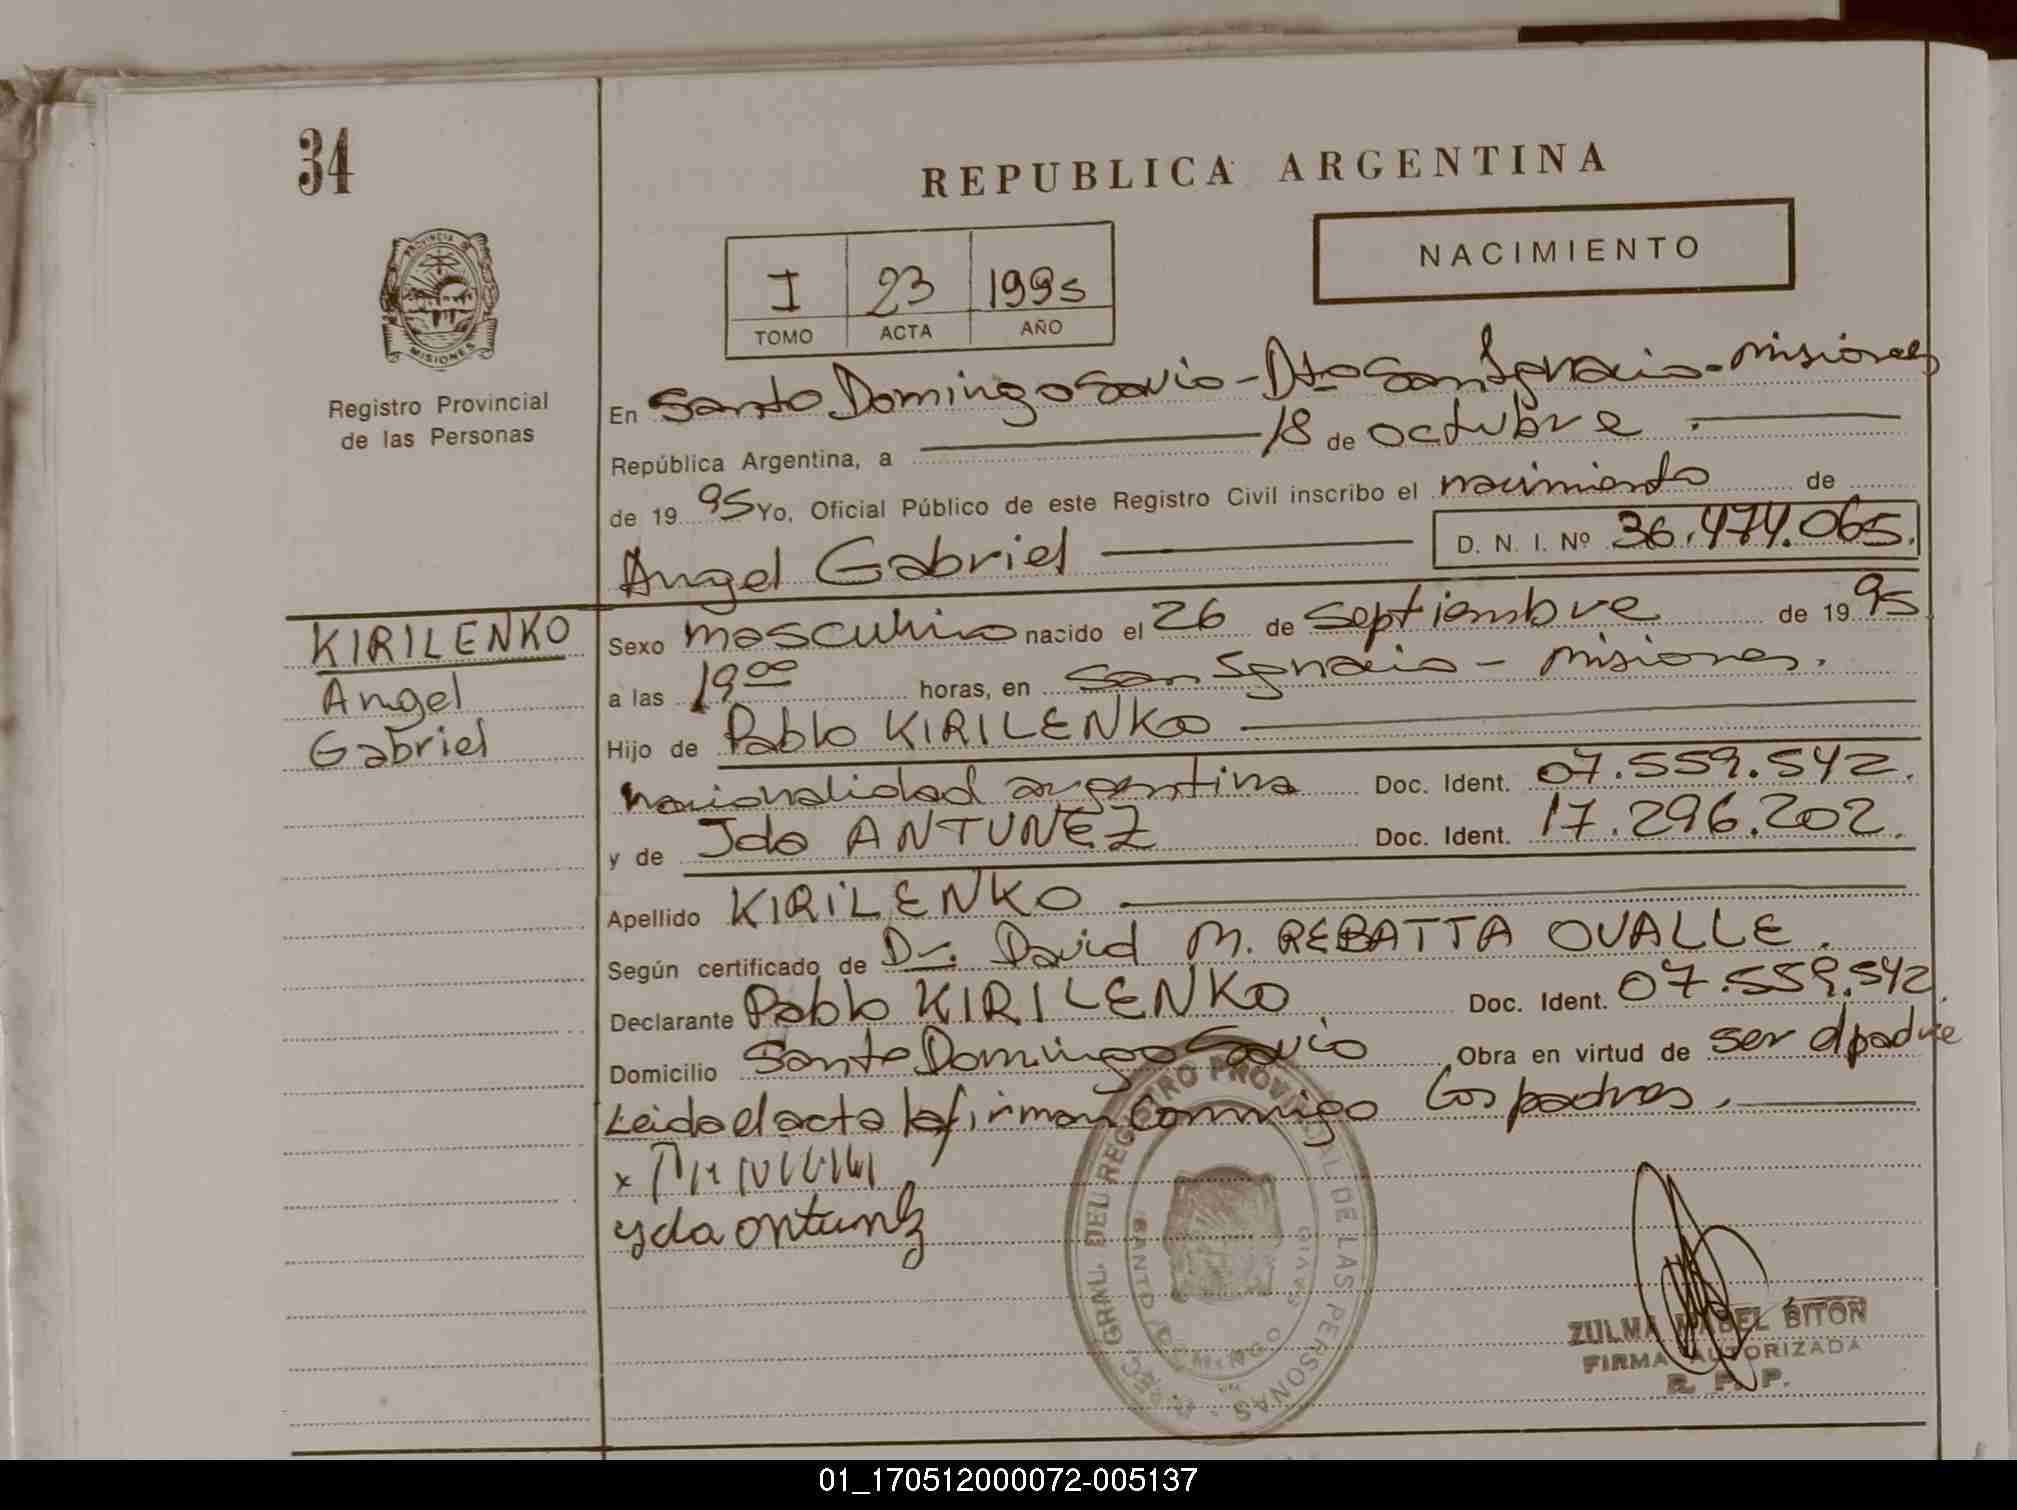 34
REPUBLICA ARGENTINA
PROVINCIA DE
MISIONES
Registro Provincial
de las Personas
I 23 1995
TOMO ACTA AÑO
NACIMIENTO
En Santo Domingo Savio - Dto San Ignacio - Misiones
República Argentina, a 18 de octubre
de 19 95 Yo, Oficial Público de este Registro Civil inscribo el nacimiento de
Angel Gabriel D. N. I. Nº 36.474.065.
KIRILENKO
Angel
Gabriel
Sexo masculino nacido el 26 de septiembre de 19 95
a las 19 00 horas, en San Ignacio - Misiones.
Hijo de Pablo KIRILENKO
nacionalidad argentina Doc. Ident. 07.559.542.
y de Ida ANTUNEZ Doc. Ident. 17.296.202.
Apellido KIRILENKO
Según certificado de Dr. David M. REBATTA OVALLE.
Declarante Pablo KIRILENKO Doc. Ident. 07.559.542.
Domicilio Santo Domingo Savio Obra en virtud de ser el padre
Leida el acta la firman conmigo los padres.
yda antunez
GRAL. DEL REGISTRO PROVINCIAL DE LAS PERSONAS
SANTO DOMINGO SAVIO
ZULMA MABEL BITON
FIRMA AUTORIZADA
R. P. P.
01_170512000072-005137